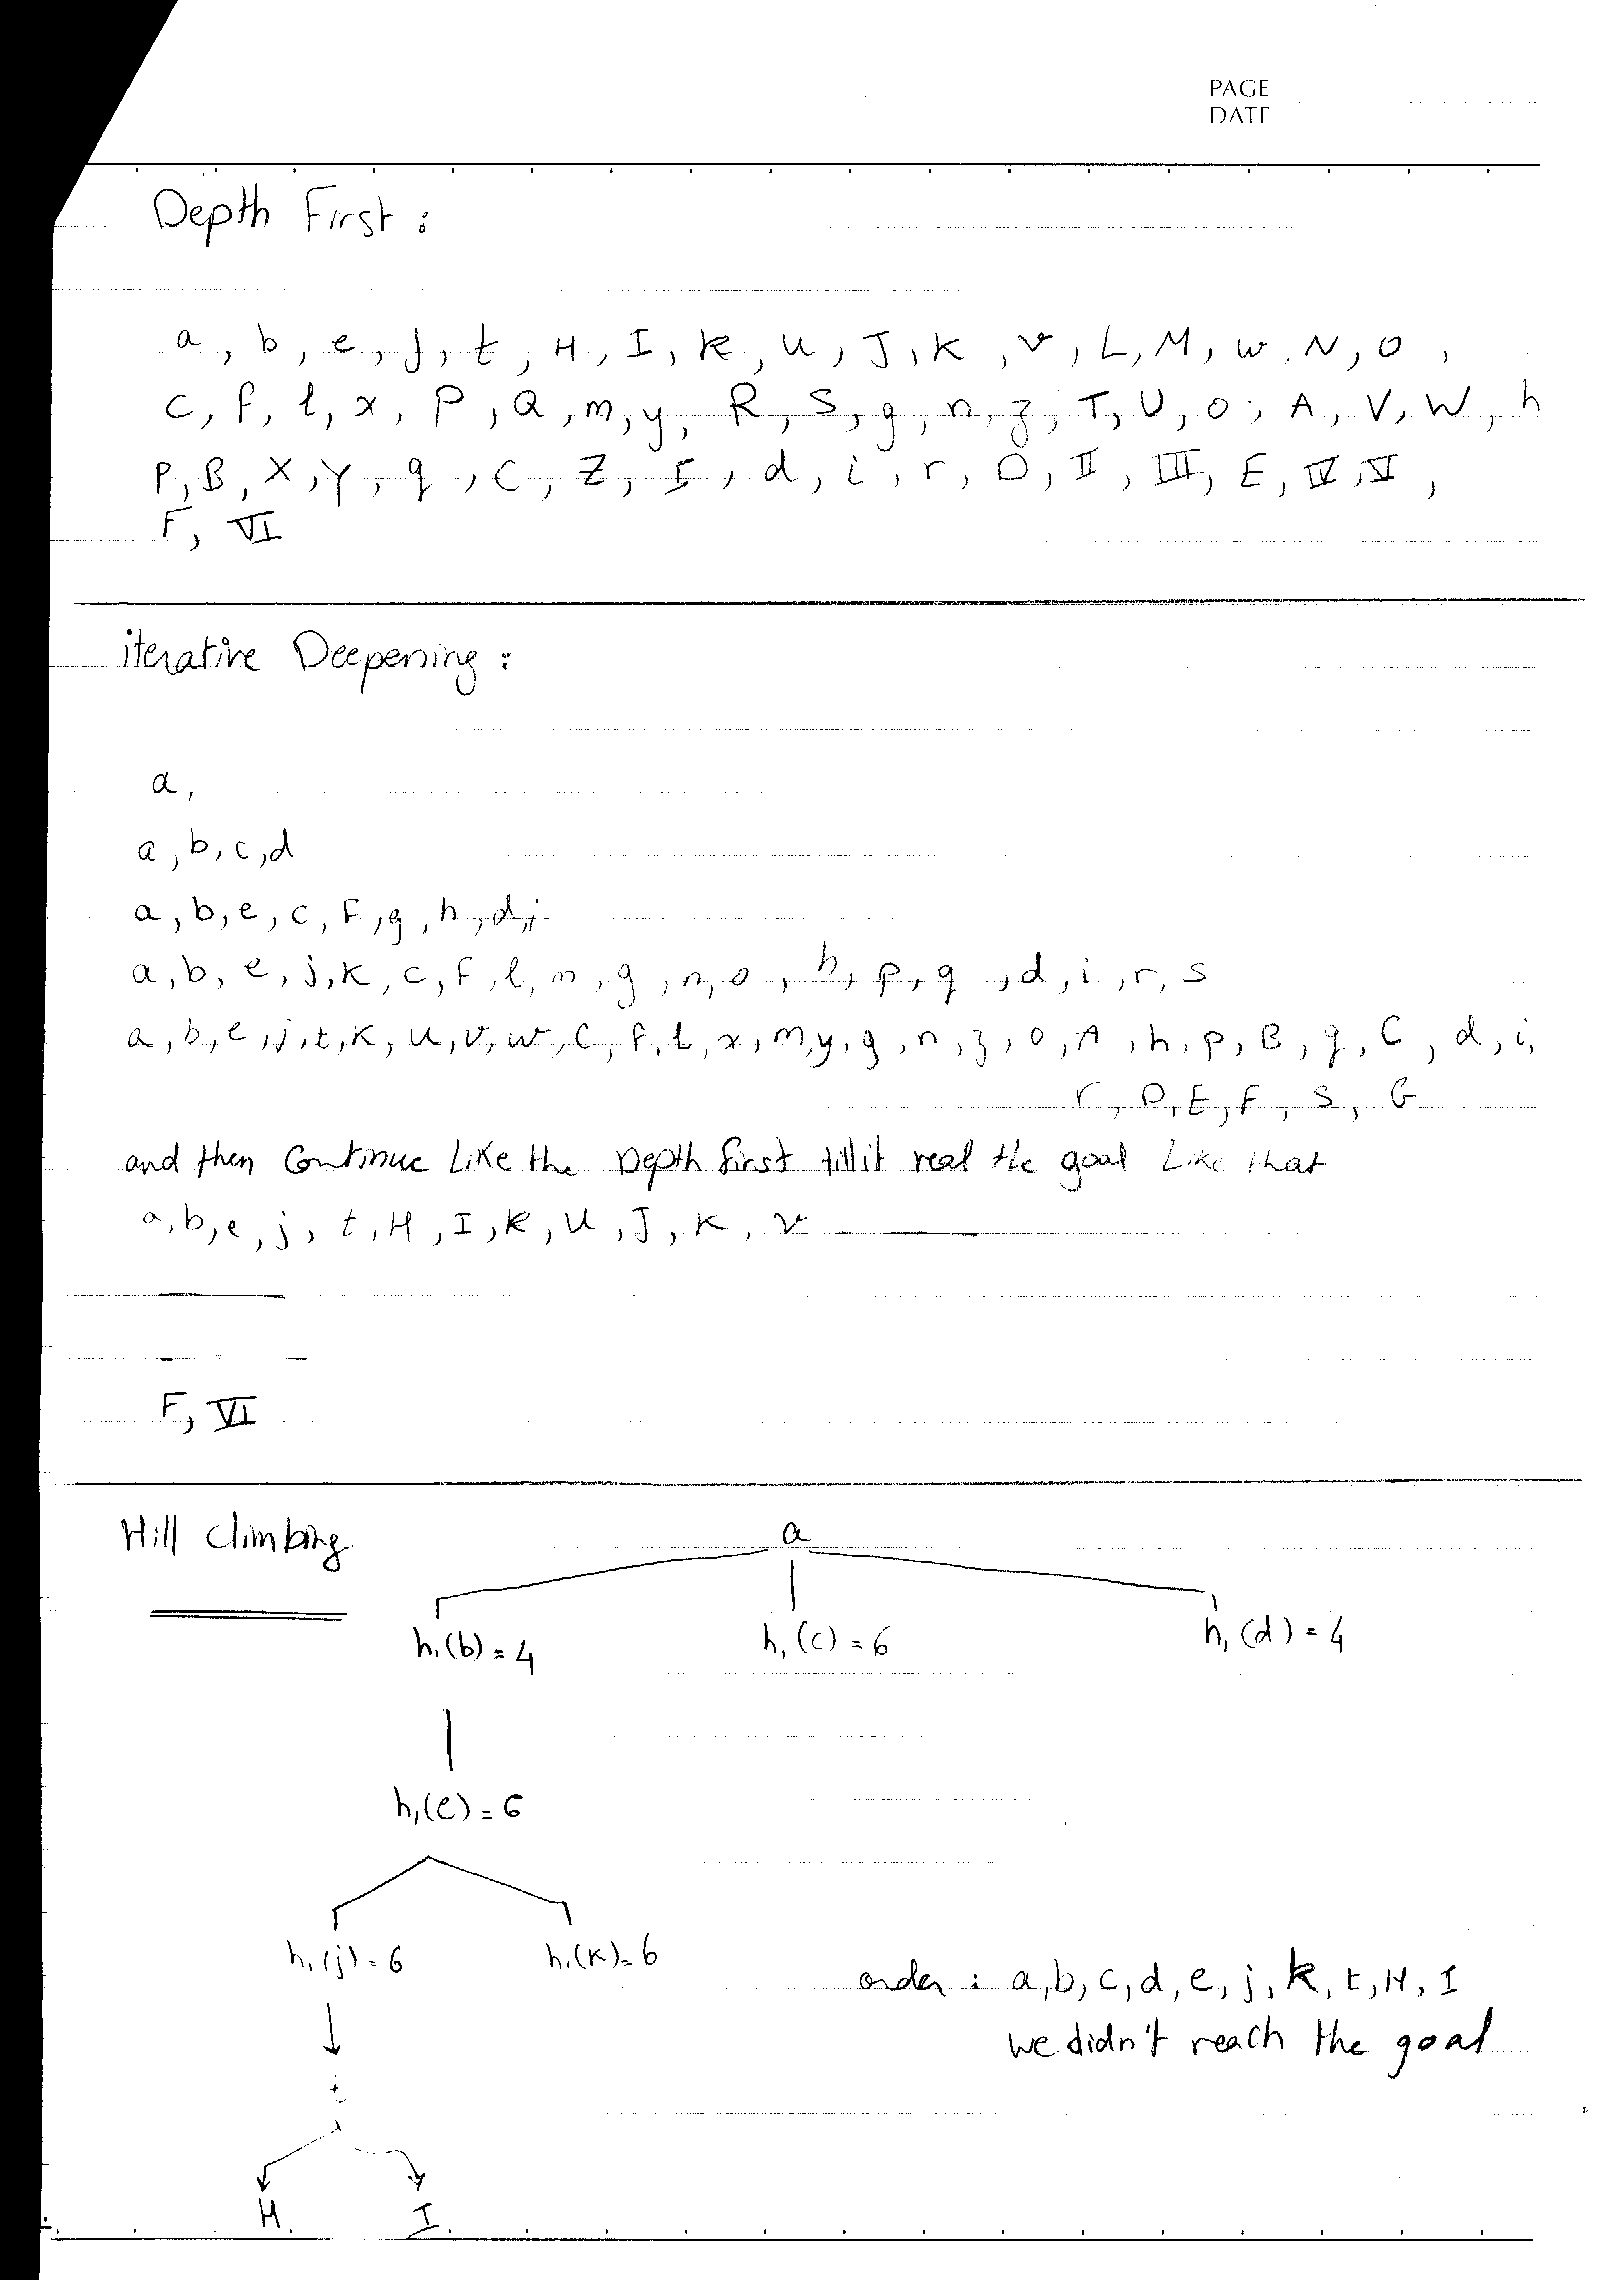 PAGE
DATE
Depth First :
a, b, e, j, t, H, I, k, u, J, K, v, L, M, w, N, O,
c, f, l, x, P, Q, m, y, R, S, g, n, z, T, U, o, A, V, W, h
p, B, X, Y, q, C, Z, I, d, i, r, D, II, III, E, IV, V,
F, VI
iterative Deepening :
a,
a, b, c, d
a, b, e, c, f, g, h, d, i
a, b, e, j, k, c, f, l, m, g, n, o, h, p, q, d, i, r, s
a, b, e, j, t, k, u, v, w, c, f, l, x, m, y, g, n, z, o, A, h, p, B, q, C, d, i,
r, D, E, F, s, G
and then Continue Like the Depth first till it real the goal Like that
a, b, e, j, t, H, I, k, u, J, K, v
F, VI
Hill Climbing
a
h₁(b) = 4 h₁(c) = 6 h₁(d) = 4
h₁(e) = 6
h₁(j) = 6 h₁(k) = 6
order : a, b, c, d, e, j, k, t, H, I
we didn't reach the goal
t
H I